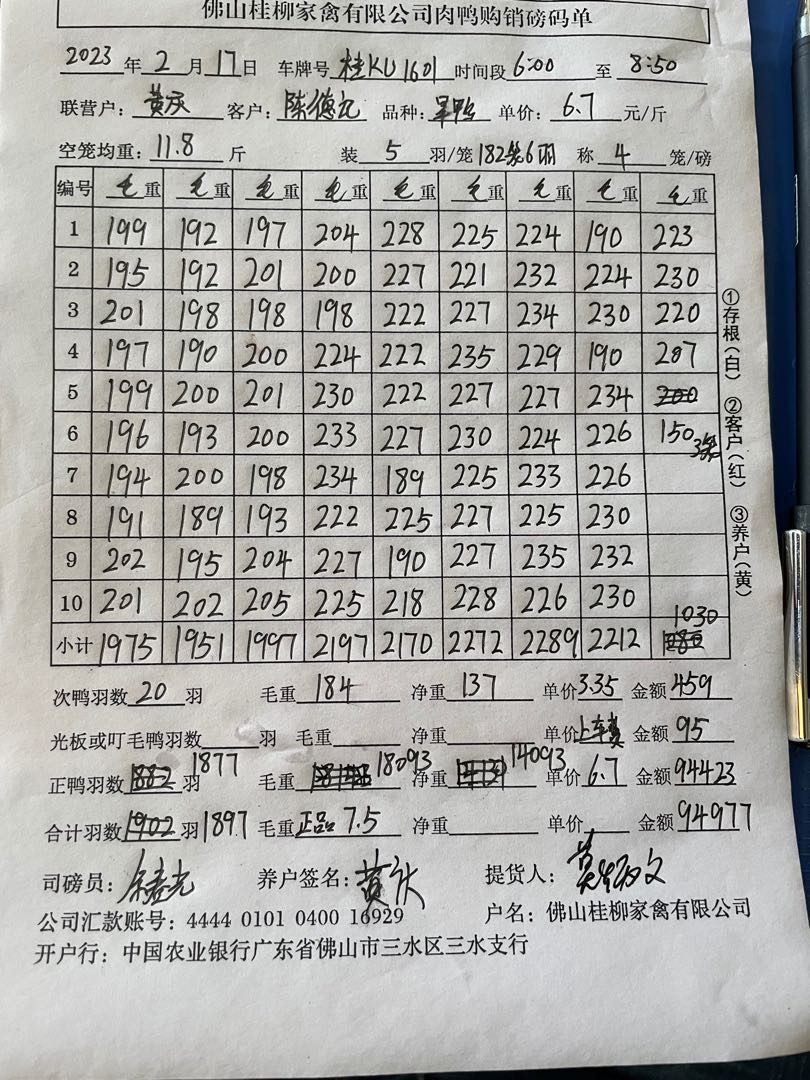 佛山桂柳家禽有限公司肉鸭购销磅码单
2023年2月17日 车牌号 桂KU1601 时间段6:00 至 8:50
联营户: 黄庆 客户: 陈德元 品种: 单价: 6.7 元/斤
空笼均重: 11.8 斤 装 5 羽/笼 182 6羽 称 4 笼/磅
编号 毛重 毛重 毛重 毛重 毛重 毛重 毛重 毛重 毛重
1 199 192 197 204 228 225 224 190 223
2 195 192 201 200 227 221 232 224 230
3 201 198 198 198 222 227 234 230 220
4 197 190 200 224 222 235 229 190 207
5 199 200 201 230 222 227 227 234 200
6 196 193 200 233 227 230 224 226 150 3笼
7 194 200 198 234 189 225 233 226
8 191 189 193 222 225 227 225 230
9 202 195 204 227 190 227 235 232
10 201 202 205 225 218 228 226 230
小计 1975 1951 1997 2197 2170 2272 2289 2212 1030
次鸭羽数 20 羽 毛重 184 净重 137 单价 3.35 金额 459
光板或叮毛鸭羽数 羽 毛重 净重 单价 上车费 金额 95
正鸭羽数 1882 羽 1877 毛重 18093 净重 14093 单价 6.7 金额 94423
合计羽数 1902 羽 1897 毛重 正品 7.5 净重 单价 金额 94977
司磅员: 养户签名: 黄庆 提货人:
公司汇款账号: 4444 0101 0400 16929 户名: 佛山桂柳家禽有限公司
开户行: 中国农业银行广东省佛山市三水区三水支行
①存根(白) ②客户(红) ③养户(黄)